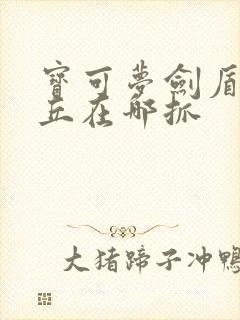 寶可夢劍盾
丘在哪抓
大猪蹄子冲鴨